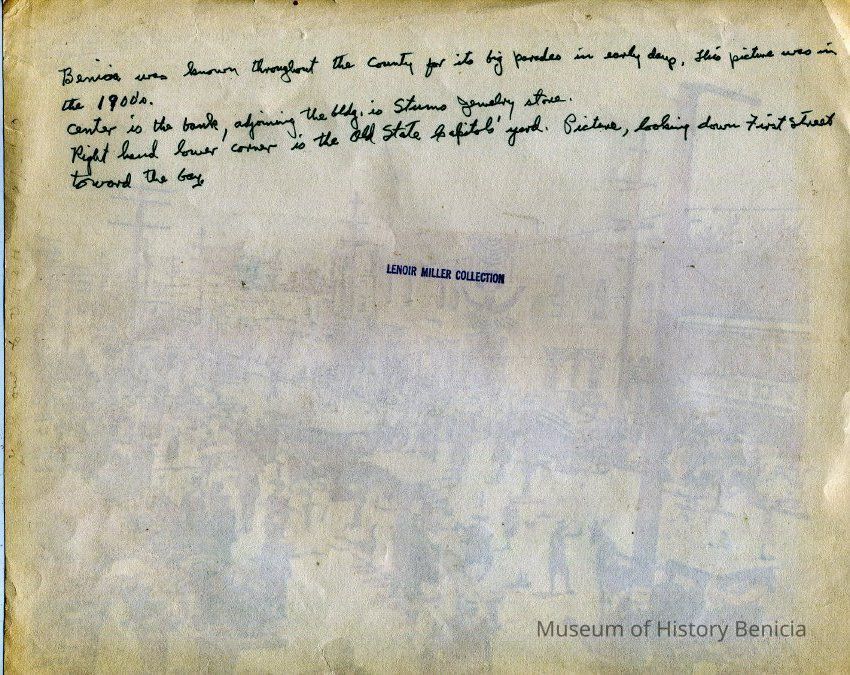 Benicia was known throughout the County for its big parades in early days. This picture was in
the 1900s.
Center is the bank, adjoining the bldg. is Stums Jewelry store.
Right hand lower corner is the Old State Capitols' yard. Picture, looking down First Street
toward the bay
LENOIR MILLER COLLECTION
Museum of History Benicia